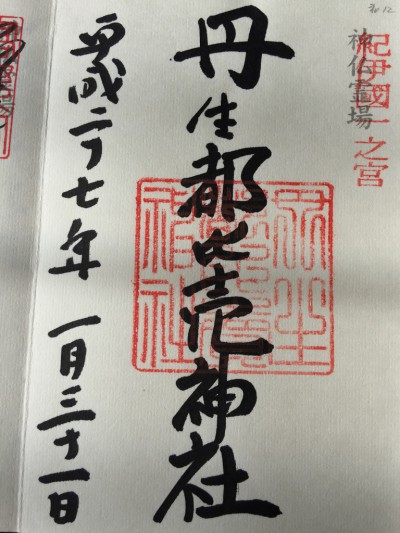 紀伊國一之宮
神仏霊場
丹生都比売神社
平成二十七年 一月三十一日